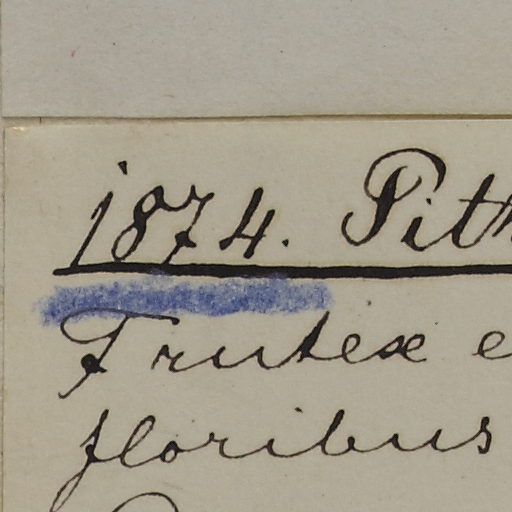 1874. Pith
Frutex e
floribus